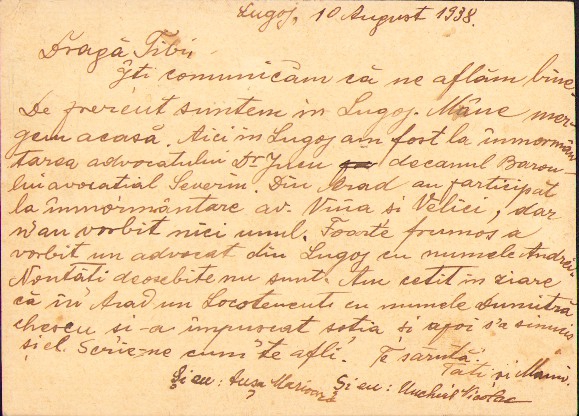 Lugoj, 10 August 1938.
Dragă Tibi,
Îți comunicăm că ne aflăm bine.
De prezent suntem în Lugoj. Mâne mer-
gem acasă. Aici în Lugoj am fost la înmormân-
tarea advocatului Dr. Jucu decanul Barou-
lui avocatial Severin. Din Arad au participat
la înmormântare av. Vina si Velici, dar
n'au vorbit nici unul. Foarte frumos a
vorbit un advocat din Lugoj cu numele Andrei.
Noutăti deosebite nu sunt. Am cetit în ziare
că în Arad un Locotenent cu numele Dumitră
chescu si-a împuscat sotia si apoi s'a sinucis
și el. Scrie-ne cum te afli. Te sărută
Tati și Mami.
Și eu: Marioară Și eu: Unchiul Nicolae